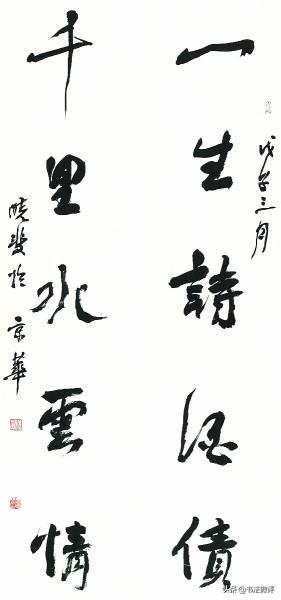 戊子三月
一生詩酒債
千里水雲情
於京華
头条 @书法微评